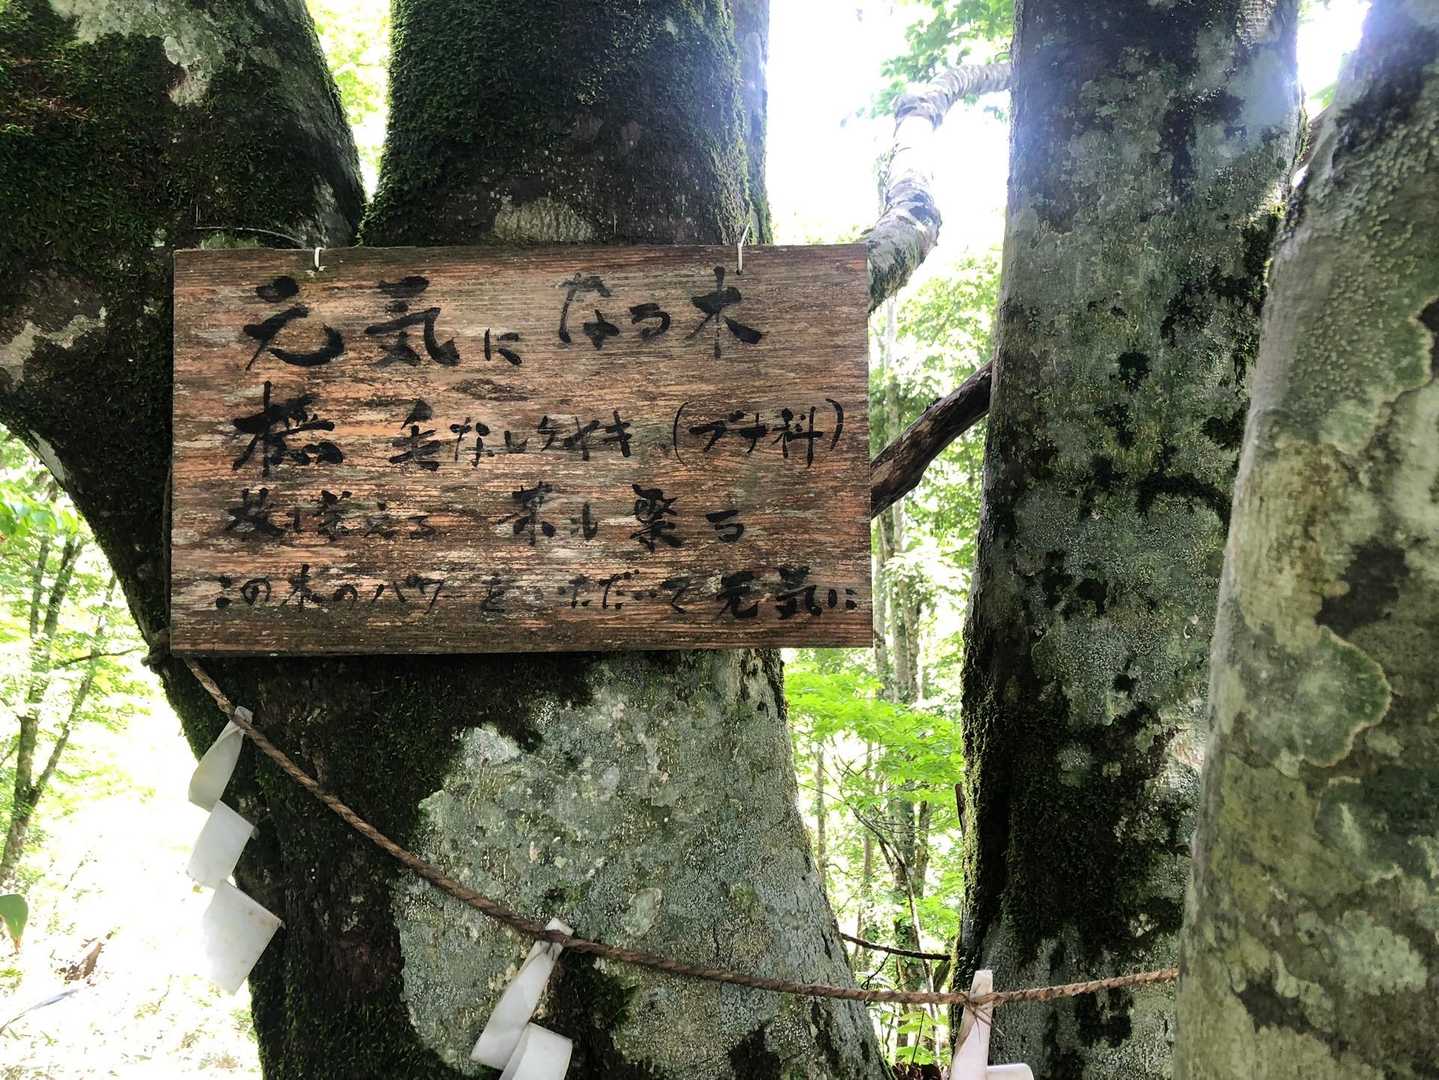 元気になる木
橅 毛なしケヤキ (ブナ科)
栄える 葉が繁る
この木のパワーをいただいて元気に